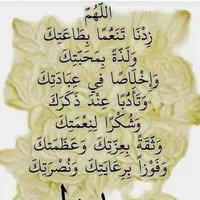 اللَّهُمَّ
زِدْنَا تَنَعُّمًا بِطَاعَتِكَ
وَلَذَّةً بِمَحَبَّتِكَ
وَإِخْلَاصًا فِي عِبَادَتِكَ
وَتَأَدُّبًا عِنْدَ ذِكْرِكَ
وَشُكْرًا لِنِعْمَتِكَ
وَثِقَةً بِعِزَّتِكَ وَعَظَمَتِكَ
وَفَوْزًا بِرِعَايَتِكَ وَنُصْرَتِكَ